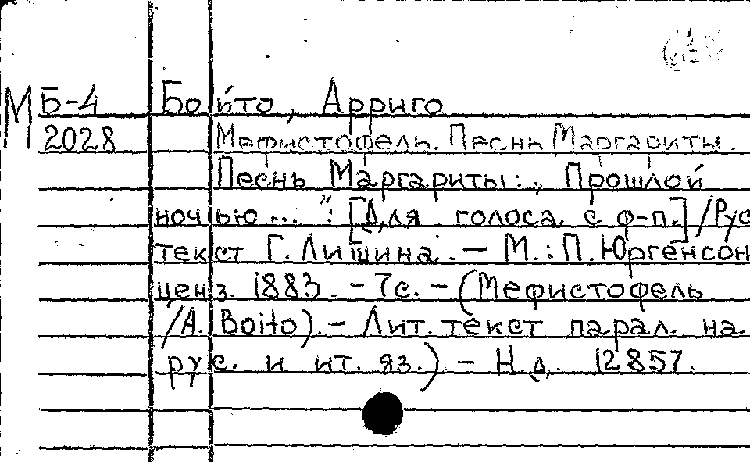 М Б-4 Бойто, Арриго
2028 Мефистофель. Песнь Маргариты.
Песнь Маргариты: „Прошлой
ночью..." : [Для голоса с ф-п.] /Рус
текст Г. Лишина. — М. : П. Юргенсон
ценз. 1883. - 7с. - (Мефистофель
/A. Boito). - Лит. текст парал. на
рус. и ит. яз.) - Н.д. 12857.